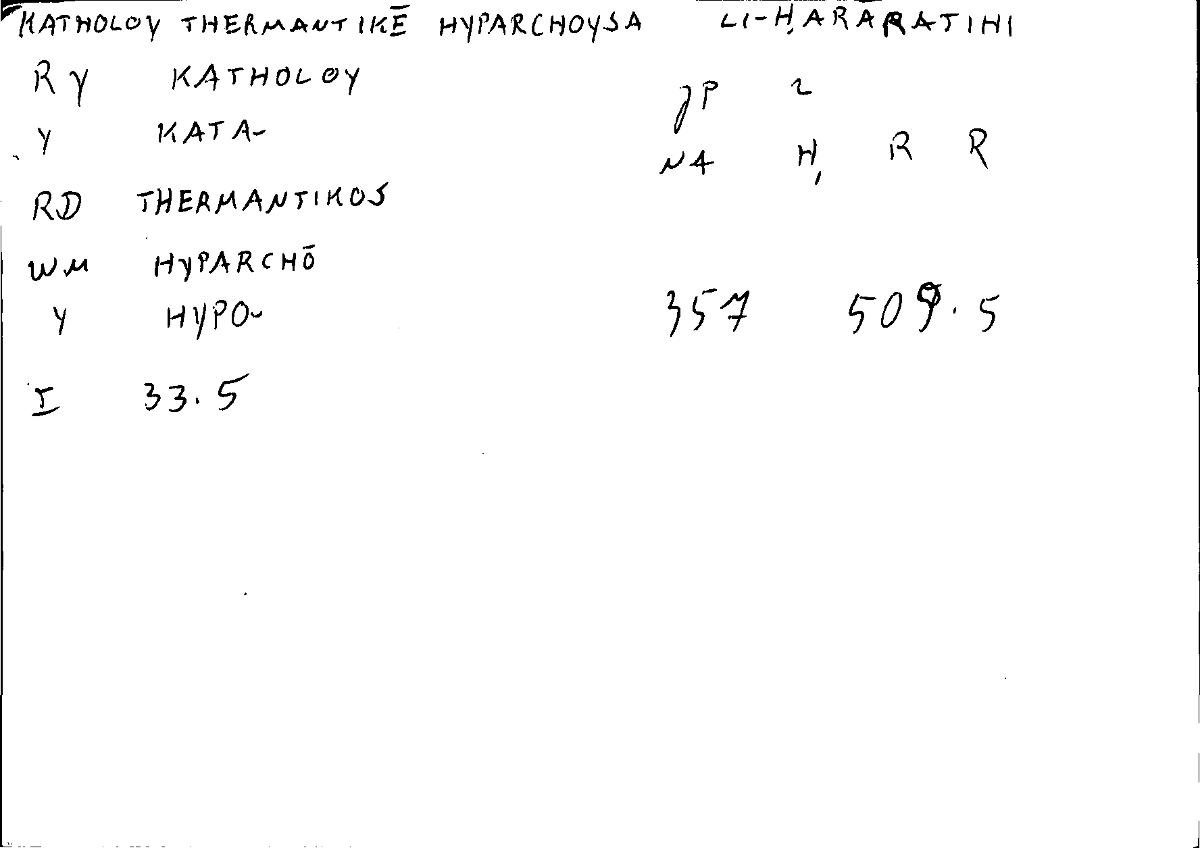 KATHOLOY THERMANTIKĒ HYPARCHOYSA LI-ḤARĀRATIHI
RY KATHOLOY JP 2
Y KATA- NA Ḥ R R
RD THERMANTIKOS
WM HYPARCHŌ
Y HYPO- 357 509.5
I 33.5